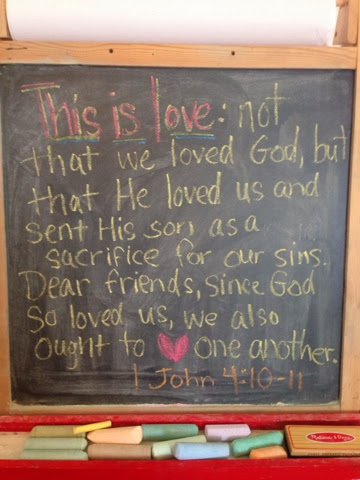 This is love: not
that we loved God, but
that He loved us and
sent His son as a
sacrifice for our sins.
Dear friends, since God
so loved us, we also
ought to ♥ one another.
1 John 4:10-11
Melissa & Doug